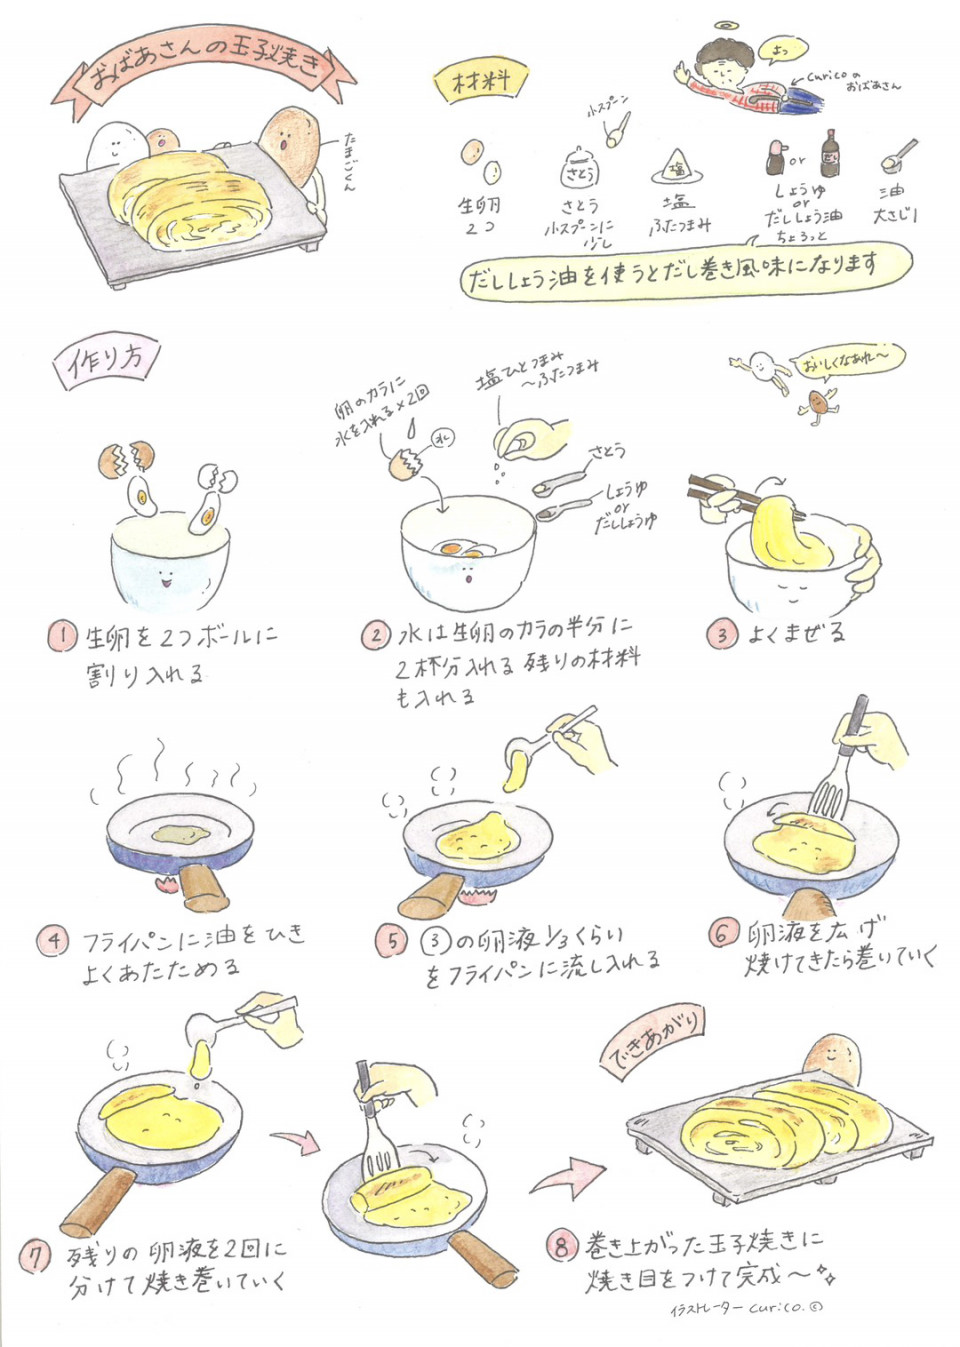 おばあさんの玉子焼き
たまごくん
材料
よっ
curicoの
おばあさん
小スプーン
生卵
2つ
さとう
さとう
小スプーンに
少し
塩
塩
ふたつまみ
or
しょうゆ
or
だししょう油
ちょろっと
油
大さじ1
だししょう油を使うとだし巻き風味になります
作り方
卵のカラに
水を入れる×2回
水
塩ひとつまみ
〜ふたつまみ
さとう
しょうゆ
or
だししょうゆ
おいしくなあれ〜
① 生卵を2つボールに
割り入れる
② 水は生卵のカラの半分に
2杯分入れる 残りの材料
も入れる
③ よくまぜる
④ フライパンに油をひき
よくあたためる
⑤ ③の卵液1/3くらい
をフライパンに流し入れる
⑥ 卵液を広げ
焼けてきたら巻いていく
⑦ 残りの卵液を2回に
分けて焼き巻いていく
できあがり
⑧ 巻き上がった玉子焼きに
焼き目をつけて完成〜
イラストレーター curico.©